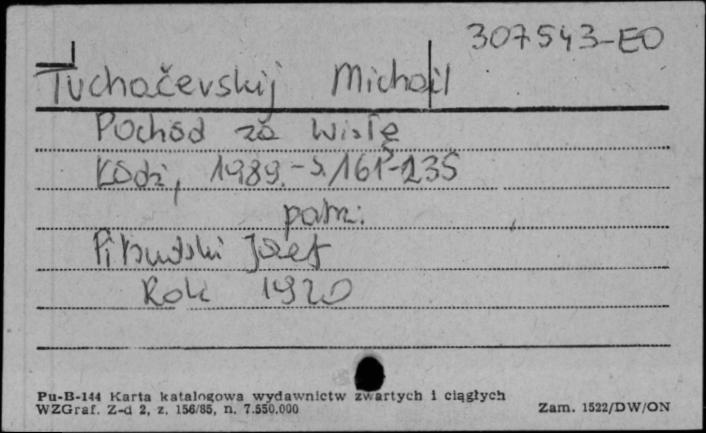 307543-EO
Tuchačevskij Michail
Pochód za Wisłę
Łódź, 1989.-S./161-235
patrz:
Piłsudski Józef
Rok 1920
Pu-B-144 Karta katalogowa wydawnictw zwartych i ciągłych
WZGraf. Z-d 2, z. 156/85, n. 7.550.000
Zam. 1522/DW/ON